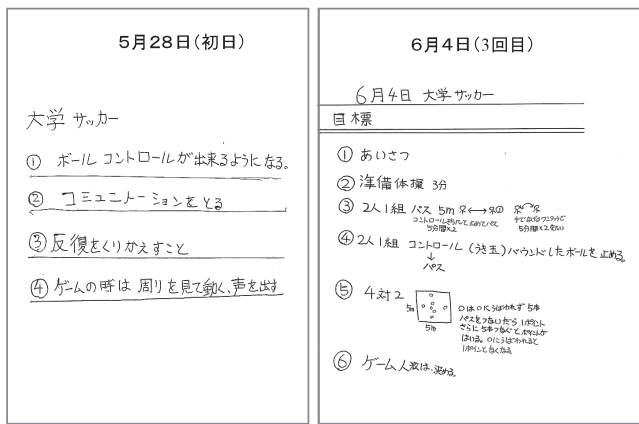 5月28日(初日)
大学 サッカー
① ボール コントロールが出来るようになる。
② コミュニケーションをとる
③ 反復をくりかえすこと
④ ゲームの時は 周りを見て動く、声を出す
6月4日(3回目)
6月4日 大学 サッカー
目標
① あいさつ
② 準備体操 3分
③ 2人1組 パス 5m
5分間×2
5分間×2
④ 2人1組 コントロール (うき玉) バウンドしたボールを止める。
↓
パス
⑤ 4対2
5m
5m
○は○にうばわれず 5本
パスをつないだら 1ポイント
さらに 5本つなぐとポイントが
はいる。○にうばわれると
1ポイント なくなる
⑥ ゲーム 人数は、決める。